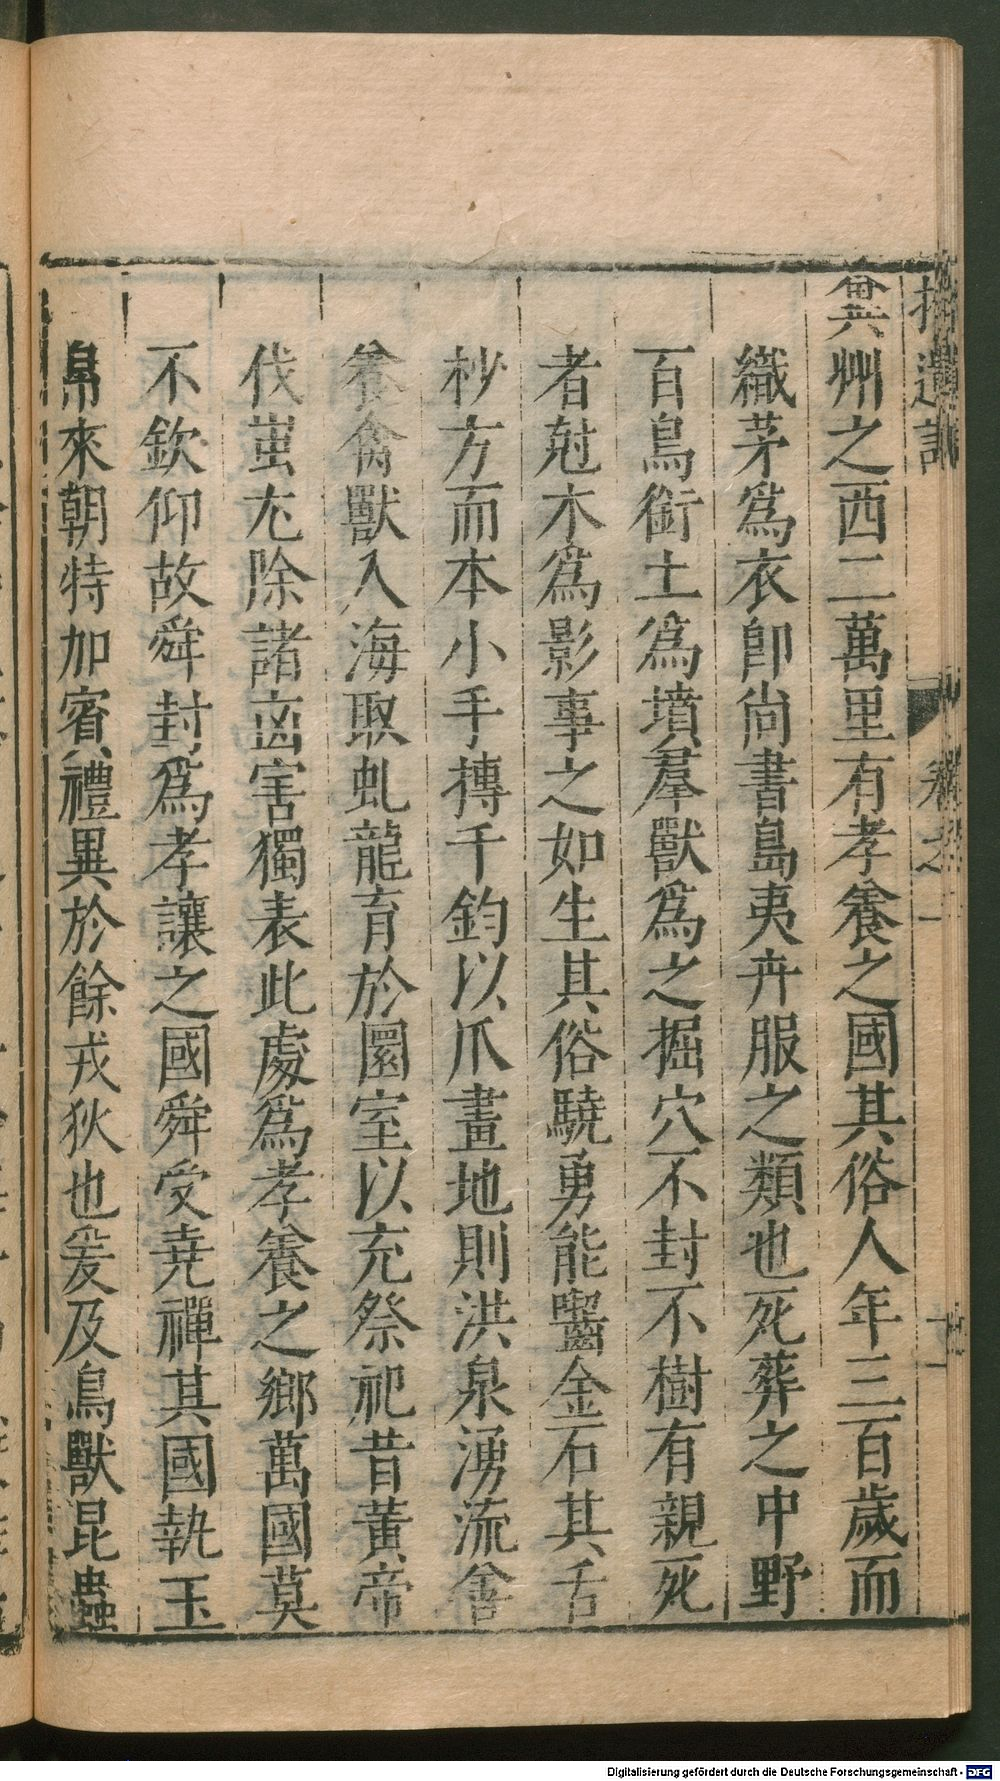 拾遺記 卷之一 十一
冀州之西二萬里有孝養之國其俗人年三百歲而
織茅爲衣卽尚書島夷卉服之類也死葬之中野
百鳥銜土爲墳羣獸爲之掘穴不封不樹有親死
者尅木爲影事之如生其俗驍勇能齧金石其舌
杪方而本小手摶千鈞以爪畫地則洪泉湧流善
養禽獸入海取虬龍育於圜室以充祭祀昔黃帝
伐蚩尤除諸凶害獨表此處爲孝養之鄉萬國莫
不欽仰故舜封爲孝讓之國舜受堯禪其國執玉
帛來朝特加賓禮異於餘戎狄也爰及鳥獸昆蟲
Digitalisierung gefördert durch die Deutsche Forschungsgemeinschaft - DFG